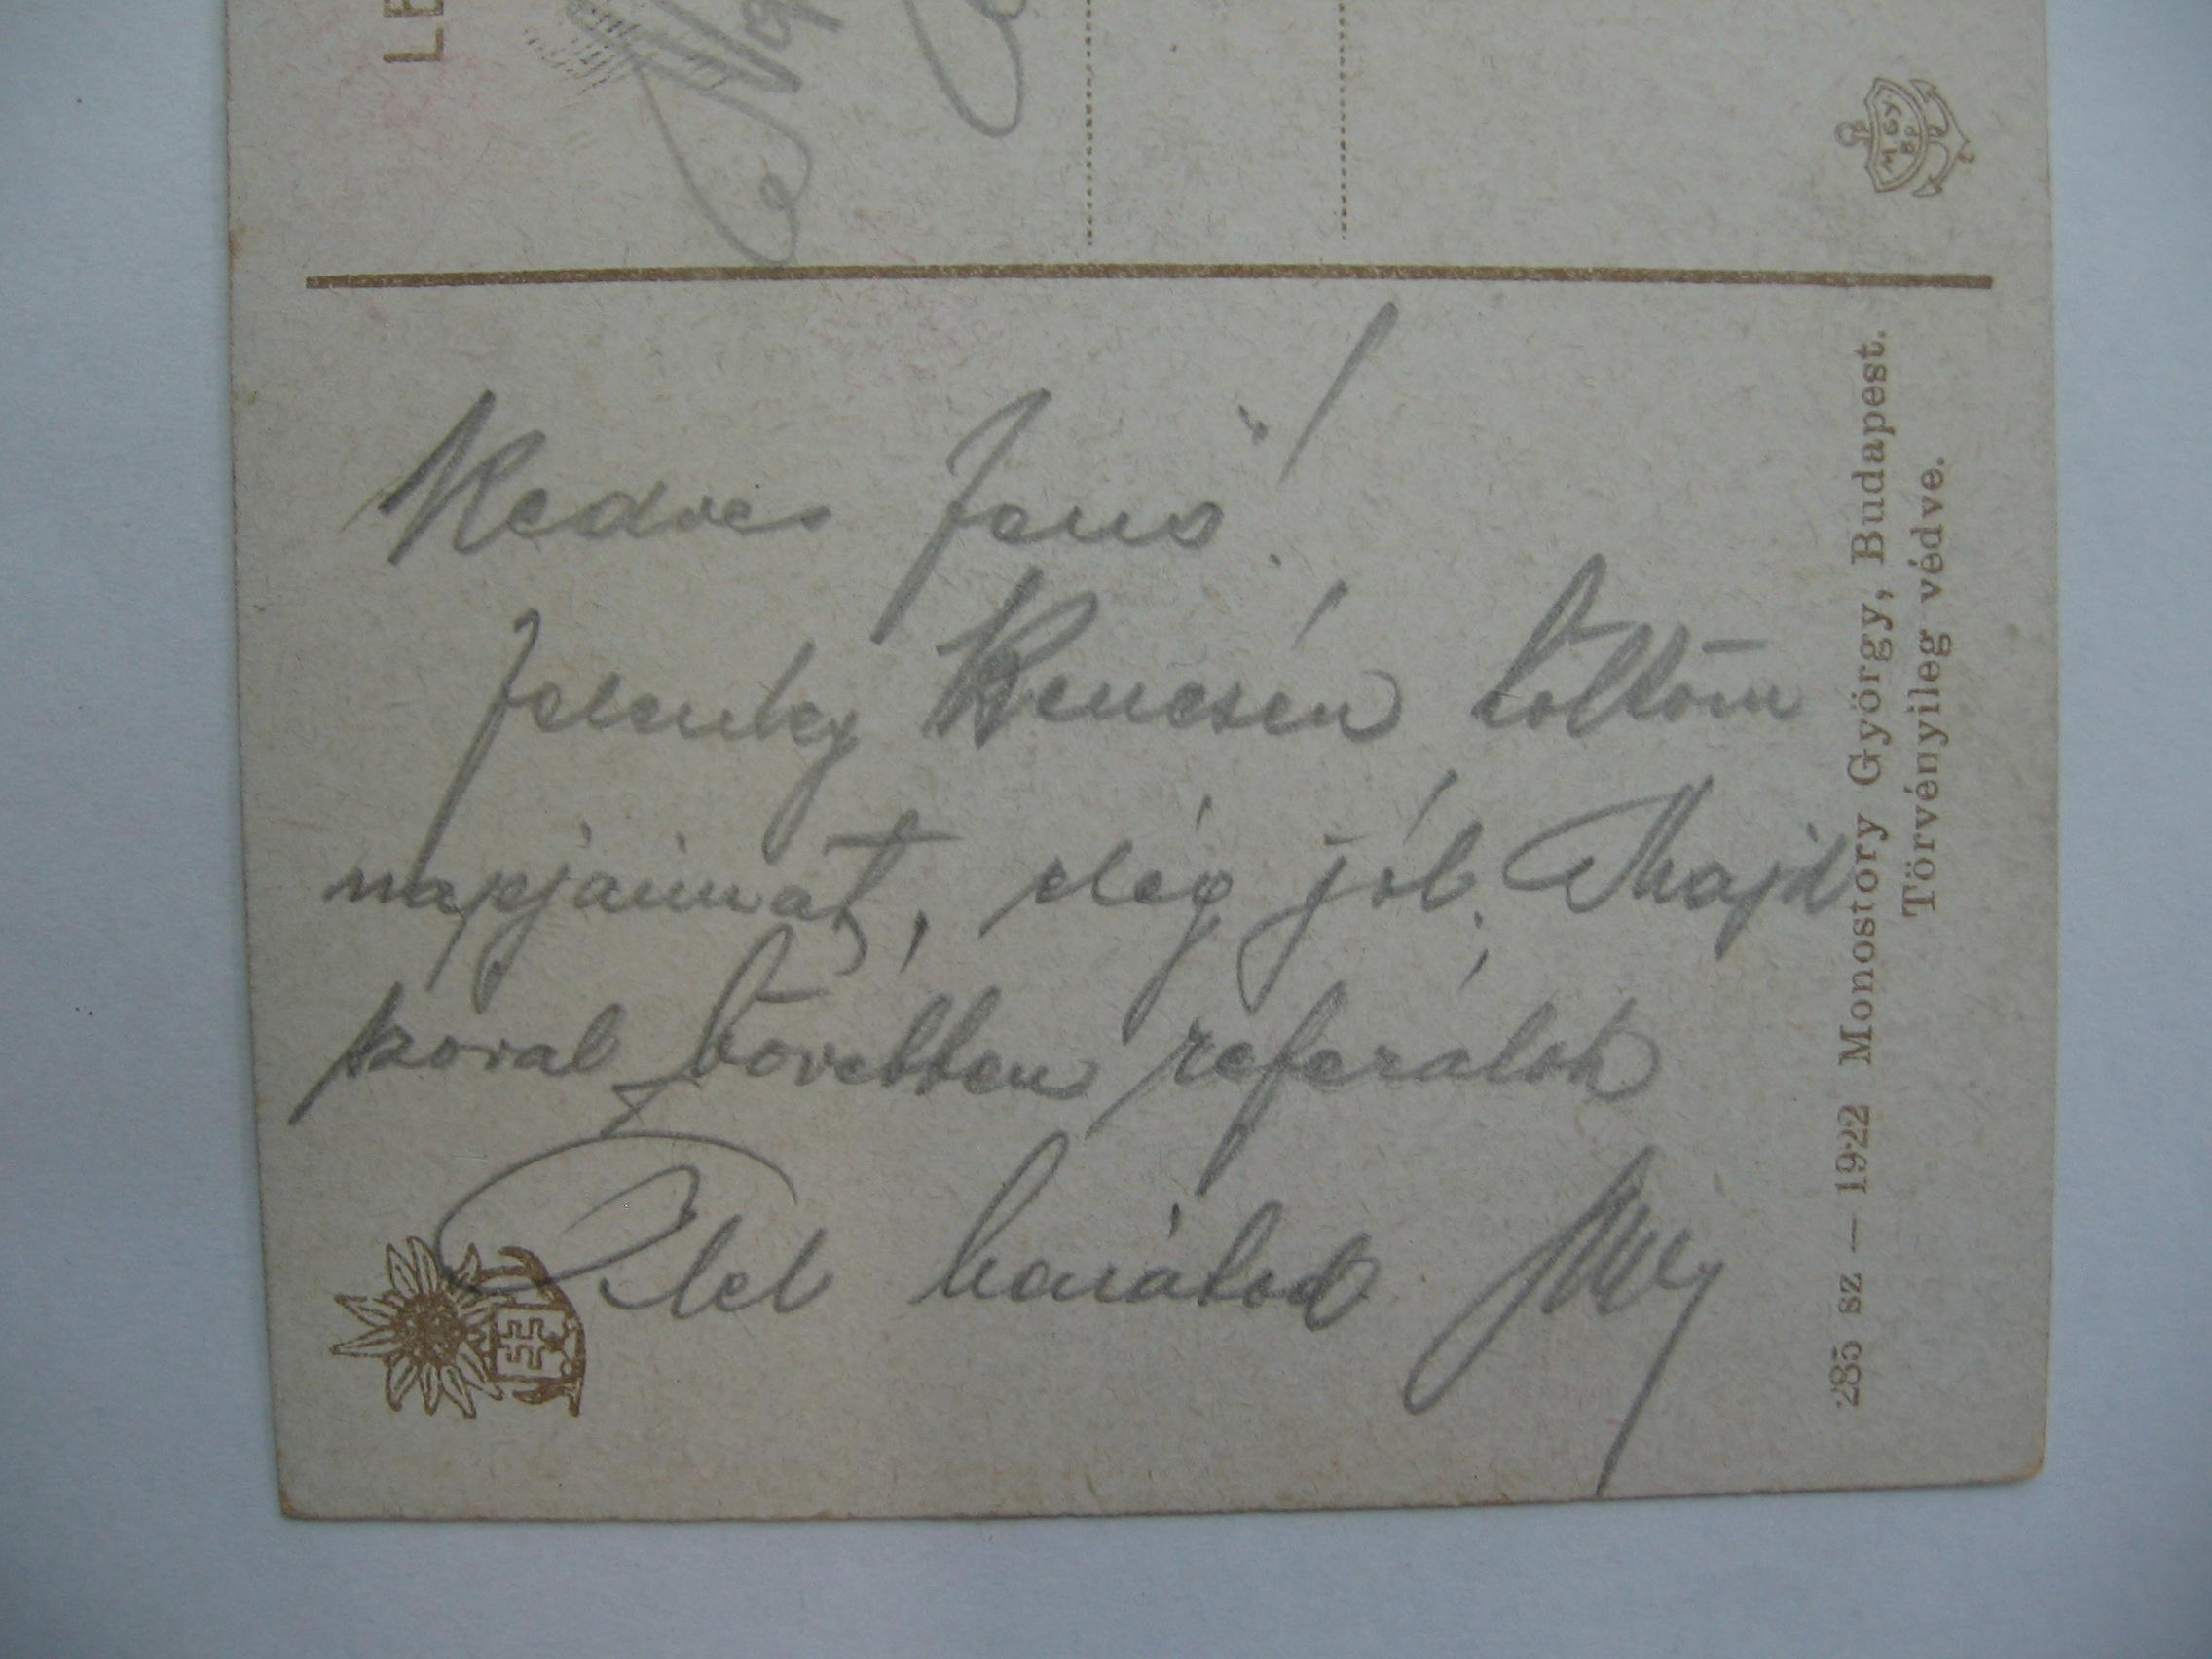 LE
Kedves Jenő!
Jelenleg Kenesén töltöm
napjaimat, elég jól. Majd
szoval bövebben referálok
Ölel barátod
285 sz — 1922 Monostory György, Budapest.
Törvényileg védve.
M GY
BP